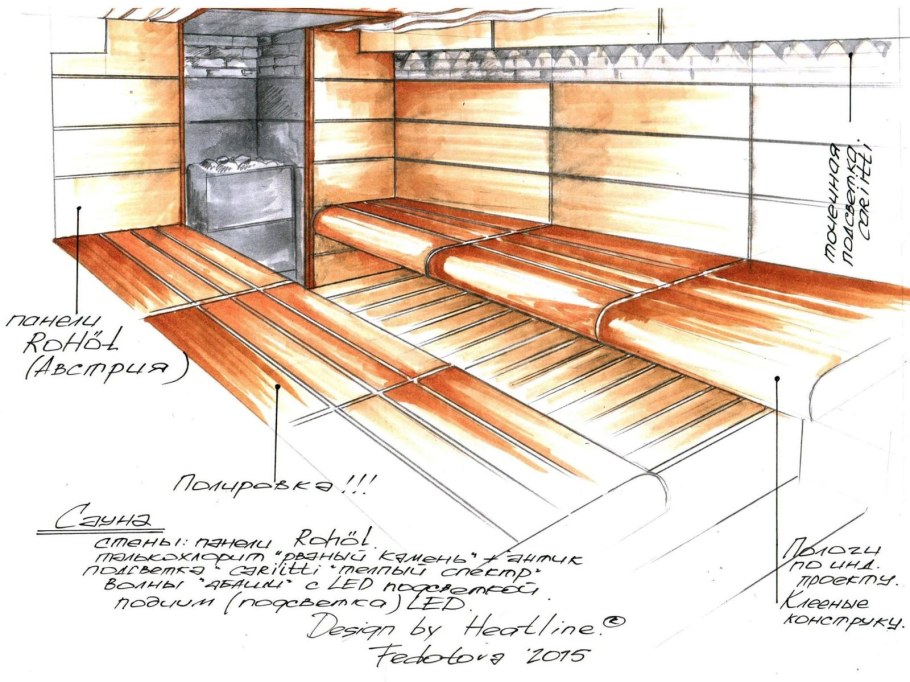 точечная
подсветка.
cariitti
панели
RoHöL
(Австрия)
Полировка!!!
Сауна
стены: панели Rohöl.
талькохлорит "рваный камень" + антик
подсветка "cariitti "теплый спектр"
волны "абаши" с LED подсветкой
подиум (подсветка) LED.
Design by Heatline.©
Fedotova 2015
Пологи
по инд.
проекту.
Клееные
конструкц.